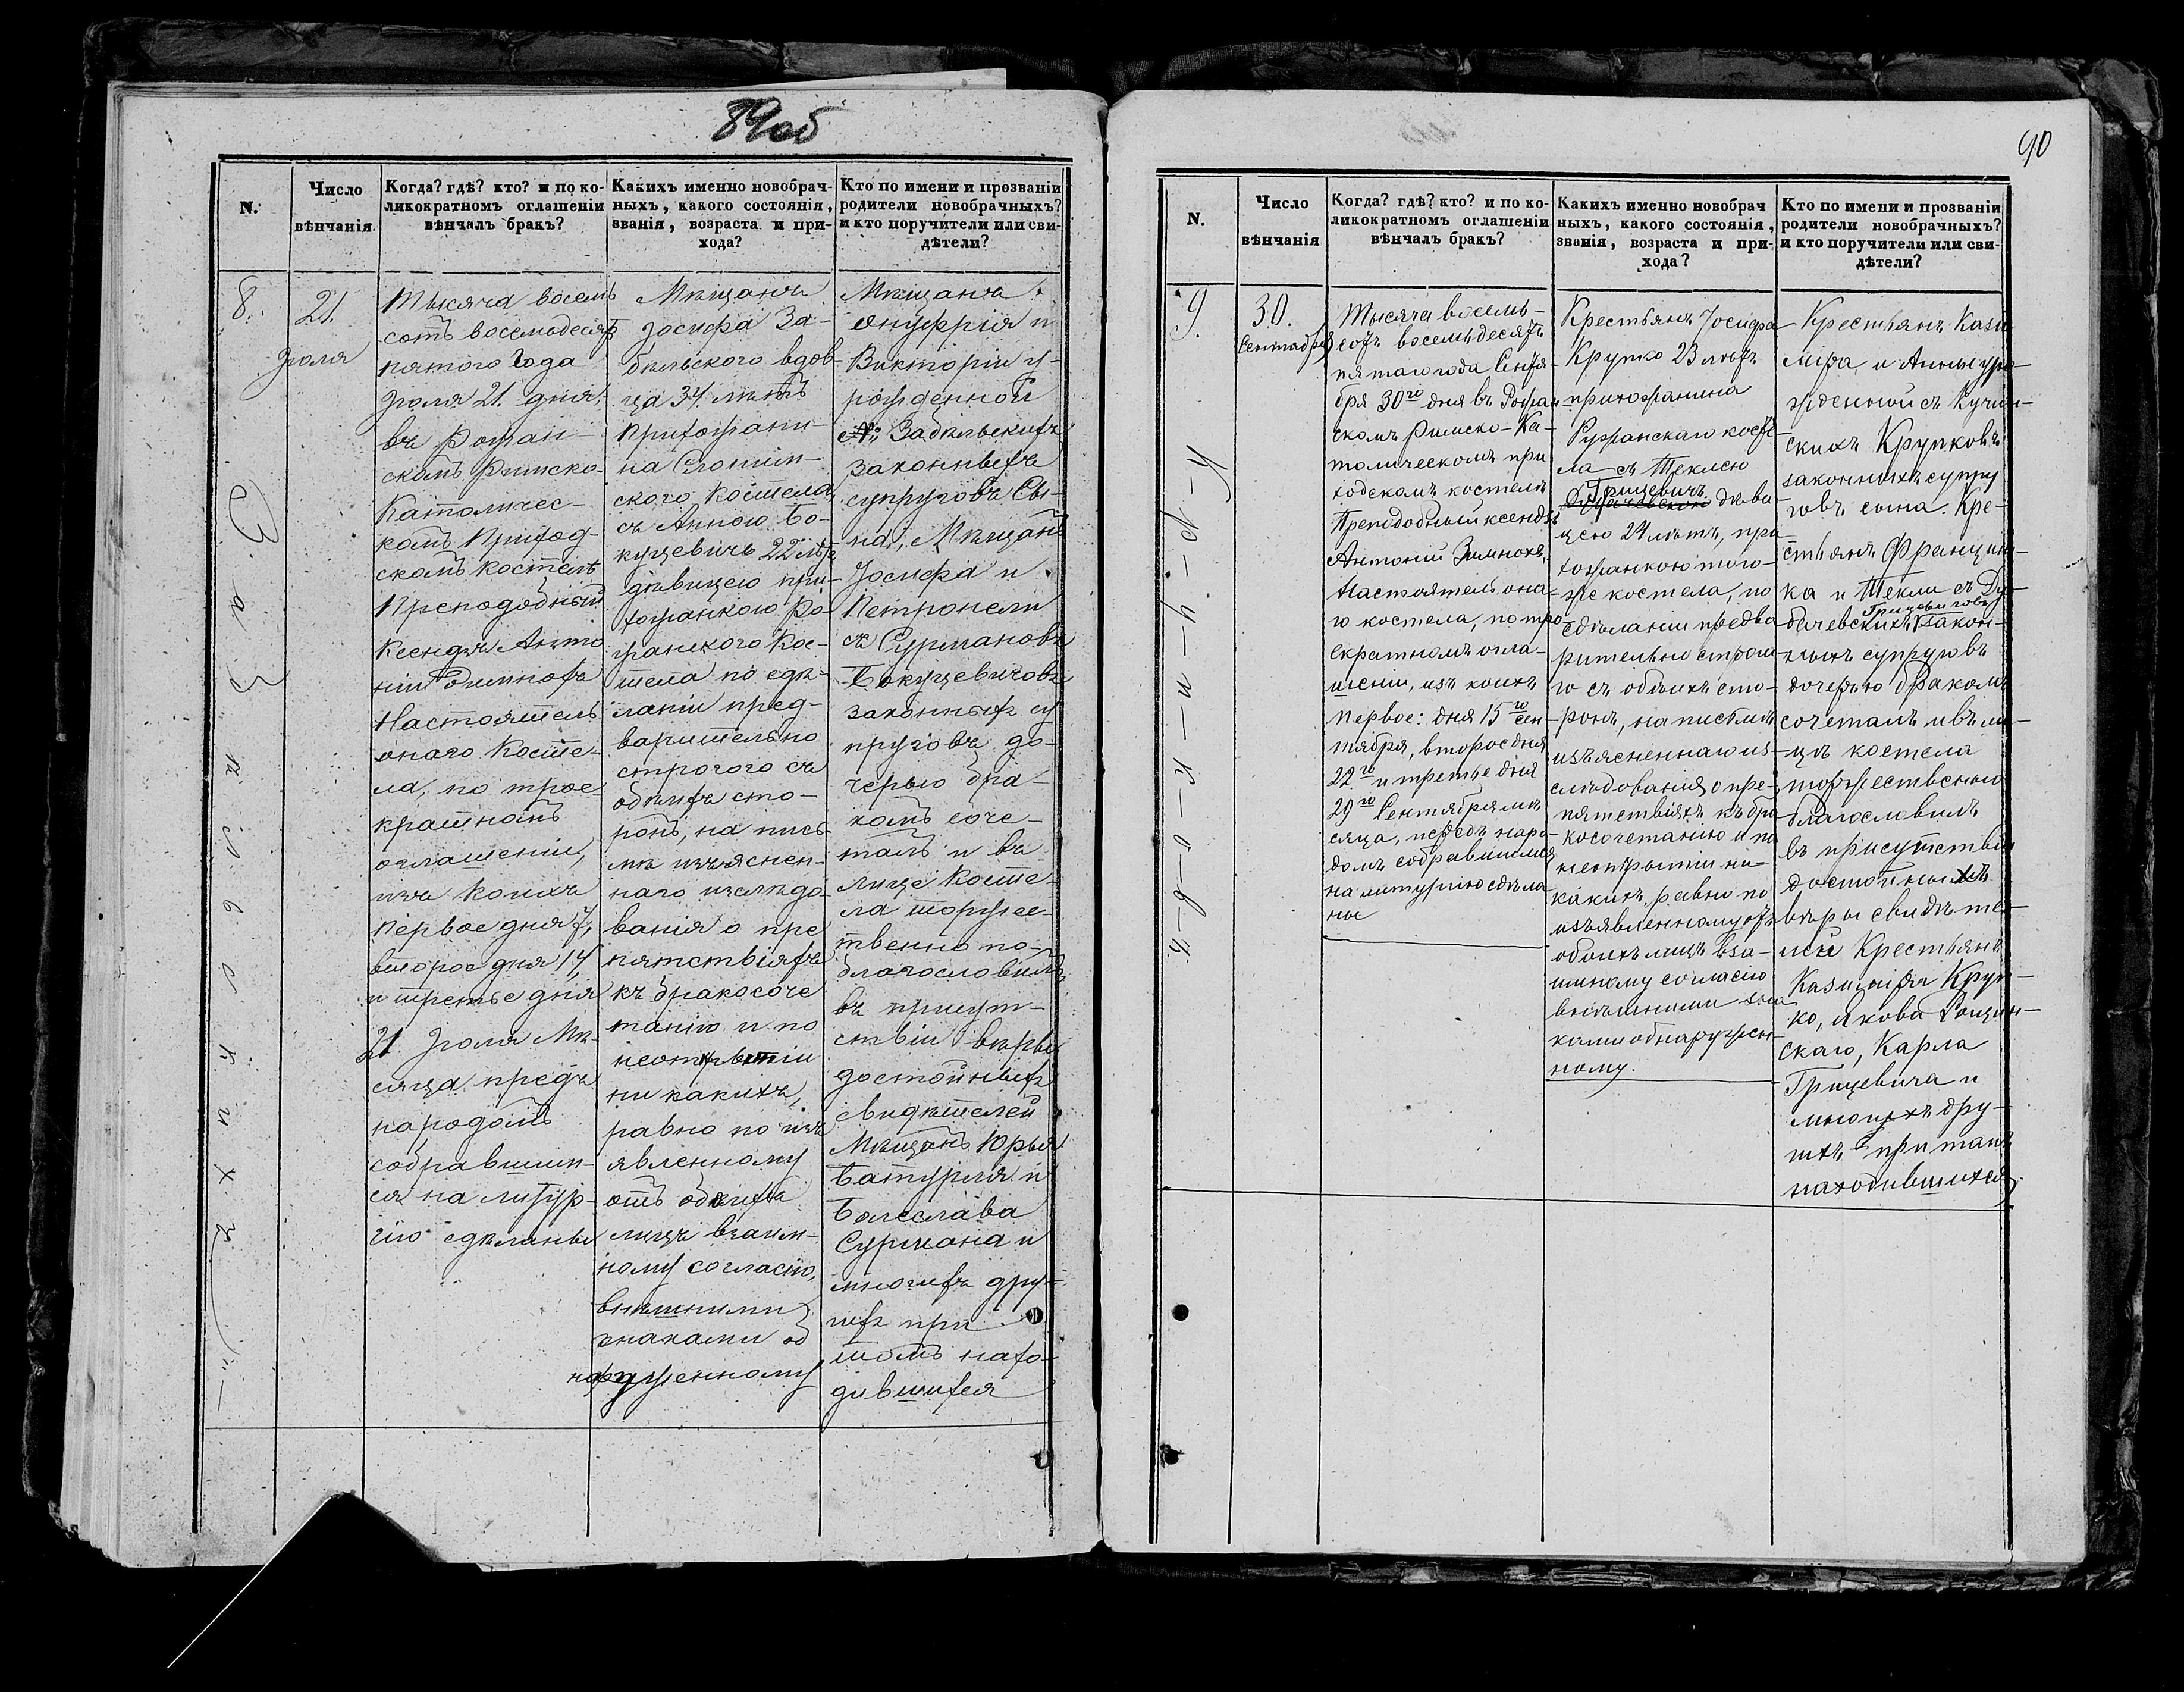 89об
N.
Число
вѣнчанія.
Когда? гдѣ? кто? и по ко-
ликократномъ оглашеніи
вѣнчалъ бракъ?
Какихъ именно новобрач-
ныхъ, какого состоянія,
званія, возраста и при-
хода?
Кто по имени и прозваніи
родители новобрачныхъ?
и кто поручители или сви-
дѣтели?
8.
21.
Іюля
Тысяча восемь
сотъ восемьдесятъ
пятого Года
Іюля 21. дня,
въ Рожан-
скомъ Римско-
Католичес-
комъ Приход-
скомъ костелѣ
Преподобный
Ксендзъ Анто
ній Зимнохъ
Настоятель
оного Косте-
ла, по трое-
кратномъ
оглашеніи,
изъ коихъ
первое дня 7,
второе дня 14,
и третье дня
21 Іюля Мѣ-
сяца предъ
народомъ
собравшим-
ся на литур-
гію сдѣланы
Мѣщанъ
Іосифа За-
бѣльского вдов-
ца 34 лѣтъ
прихожани-
на Слоним-
ского Костела
съ Анною Бо-
куцевичъ 22 лѣтъ
дѣвицею при-
хожанкою Ро-
жанского Кос-
тела по сдѣ-
ланіи пред-
варительно
строгого съ
обѣихъ сто-
ронъ, на пись-
мѣ изъяснен-
наго изслѣдо-
ванія о пре
пятствіяхъ
къ бракосоче
танію и по
неоткрытіи
ни какихъ,
равно по изъ
явленному
отъ обоихъ
лицъ взаим-
ному согласію,
внѣшними
знаками об
наруженному
Мѣщанъ
Онуфрія и
Викторіи у-
рожденной
Забѣльскихъ
законныхъ
супруговъ Сы-
на, Мѣщанъ
Іосифа и
Петронели
съ Сурмановъ
Бокуцевичовъ
законныхъ су
пруговъ до-
черью бра-
комъ соче-
талъ и въ
лице Косте-
ла торжес-
твенно по-
благословилъ
въ присут-
ствіи вѣры
достойныхъ
свидѣтелей
Мѣщанъ Юрья
Батурля и
Болеслава
Сурмана и
многихъ дру-
гихъ при
томъ нахо-
дившихся
Забѣльскихъ
90
N.
Число
вѣнчанія
Когда? гдѣ? кто? и по ко-
ликократномъ оглашеніи
вѣнчалъ бракъ?
Какихъ именно новобрач
ныхъ, какого состоянія,
званія, возраста и при-
хода?
Кто по имени и прозваніи
родители новобрачныхъ?
и кто поручители или сви-
дѣтели?
9.
30.
Сентября
Тысяча восемь-
сотъ восемьдесятъ
пятаго года Сентя-
бря 30го дня въ Рожан-
скомъ Римско-Ка-
толическомъ при
ходскомъ костелѣ
Преподобный ксендзъ
Антоній Зимнохъ,
Настоятель она-
го костела, по тро-
екратномъ огла-
шеніи, изъ коихъ
первое: дня 15го Сен-
тября, второе дня
22го и третье дня
29го Сентября мѣ
сяца, передъ наро-
домъ собравшимся
на литургію сдѣла
ны
Крестьянъ Іосифа
Крупко 23 лѣтъ
прихожанина
Ружанскаго косте
ла съ Теклею
Грицевичъ
дѣви
цею 24 лѣтъ, при
хожанкою того-
же костела, по
сдѣланіи предва
рительно строго
го съ обѣихъ сто-
ронъ, на письмѣ
изъясненнаго из-
слѣдованія о пре-
пятствіяхъ къ бра
косочетанію и по
неоткрытіи ни-
какихъ, равно по
изъявленному отъ
обоихъ лицъ вза-
имному согласію
внѣшними зна
ками обнаружен-
ному.
Крестьянъ Кази
міра и Анны уро-
жденной съ Кучин-
скихъ Крупковъ
законныхъ супру
говъ сына. Кре-
стьянъ Франциш-
ка и Текли съ Ду-
Грицевичовъ
бачевскихъ закон-
ныхъ супруговъ
дочерью бракомъ
сочеталъ и въ ли-
цѣ костела
торжественно
благословилъ
въ присутствіи
достойныхъ
вѣры свидѣте-
лей Крестьянъ
Казиміра Круп-
ко, Якова Рощин-
скаго, Карла
Грицевича и
многихъ дру-
гихъ при томъ
находившихся